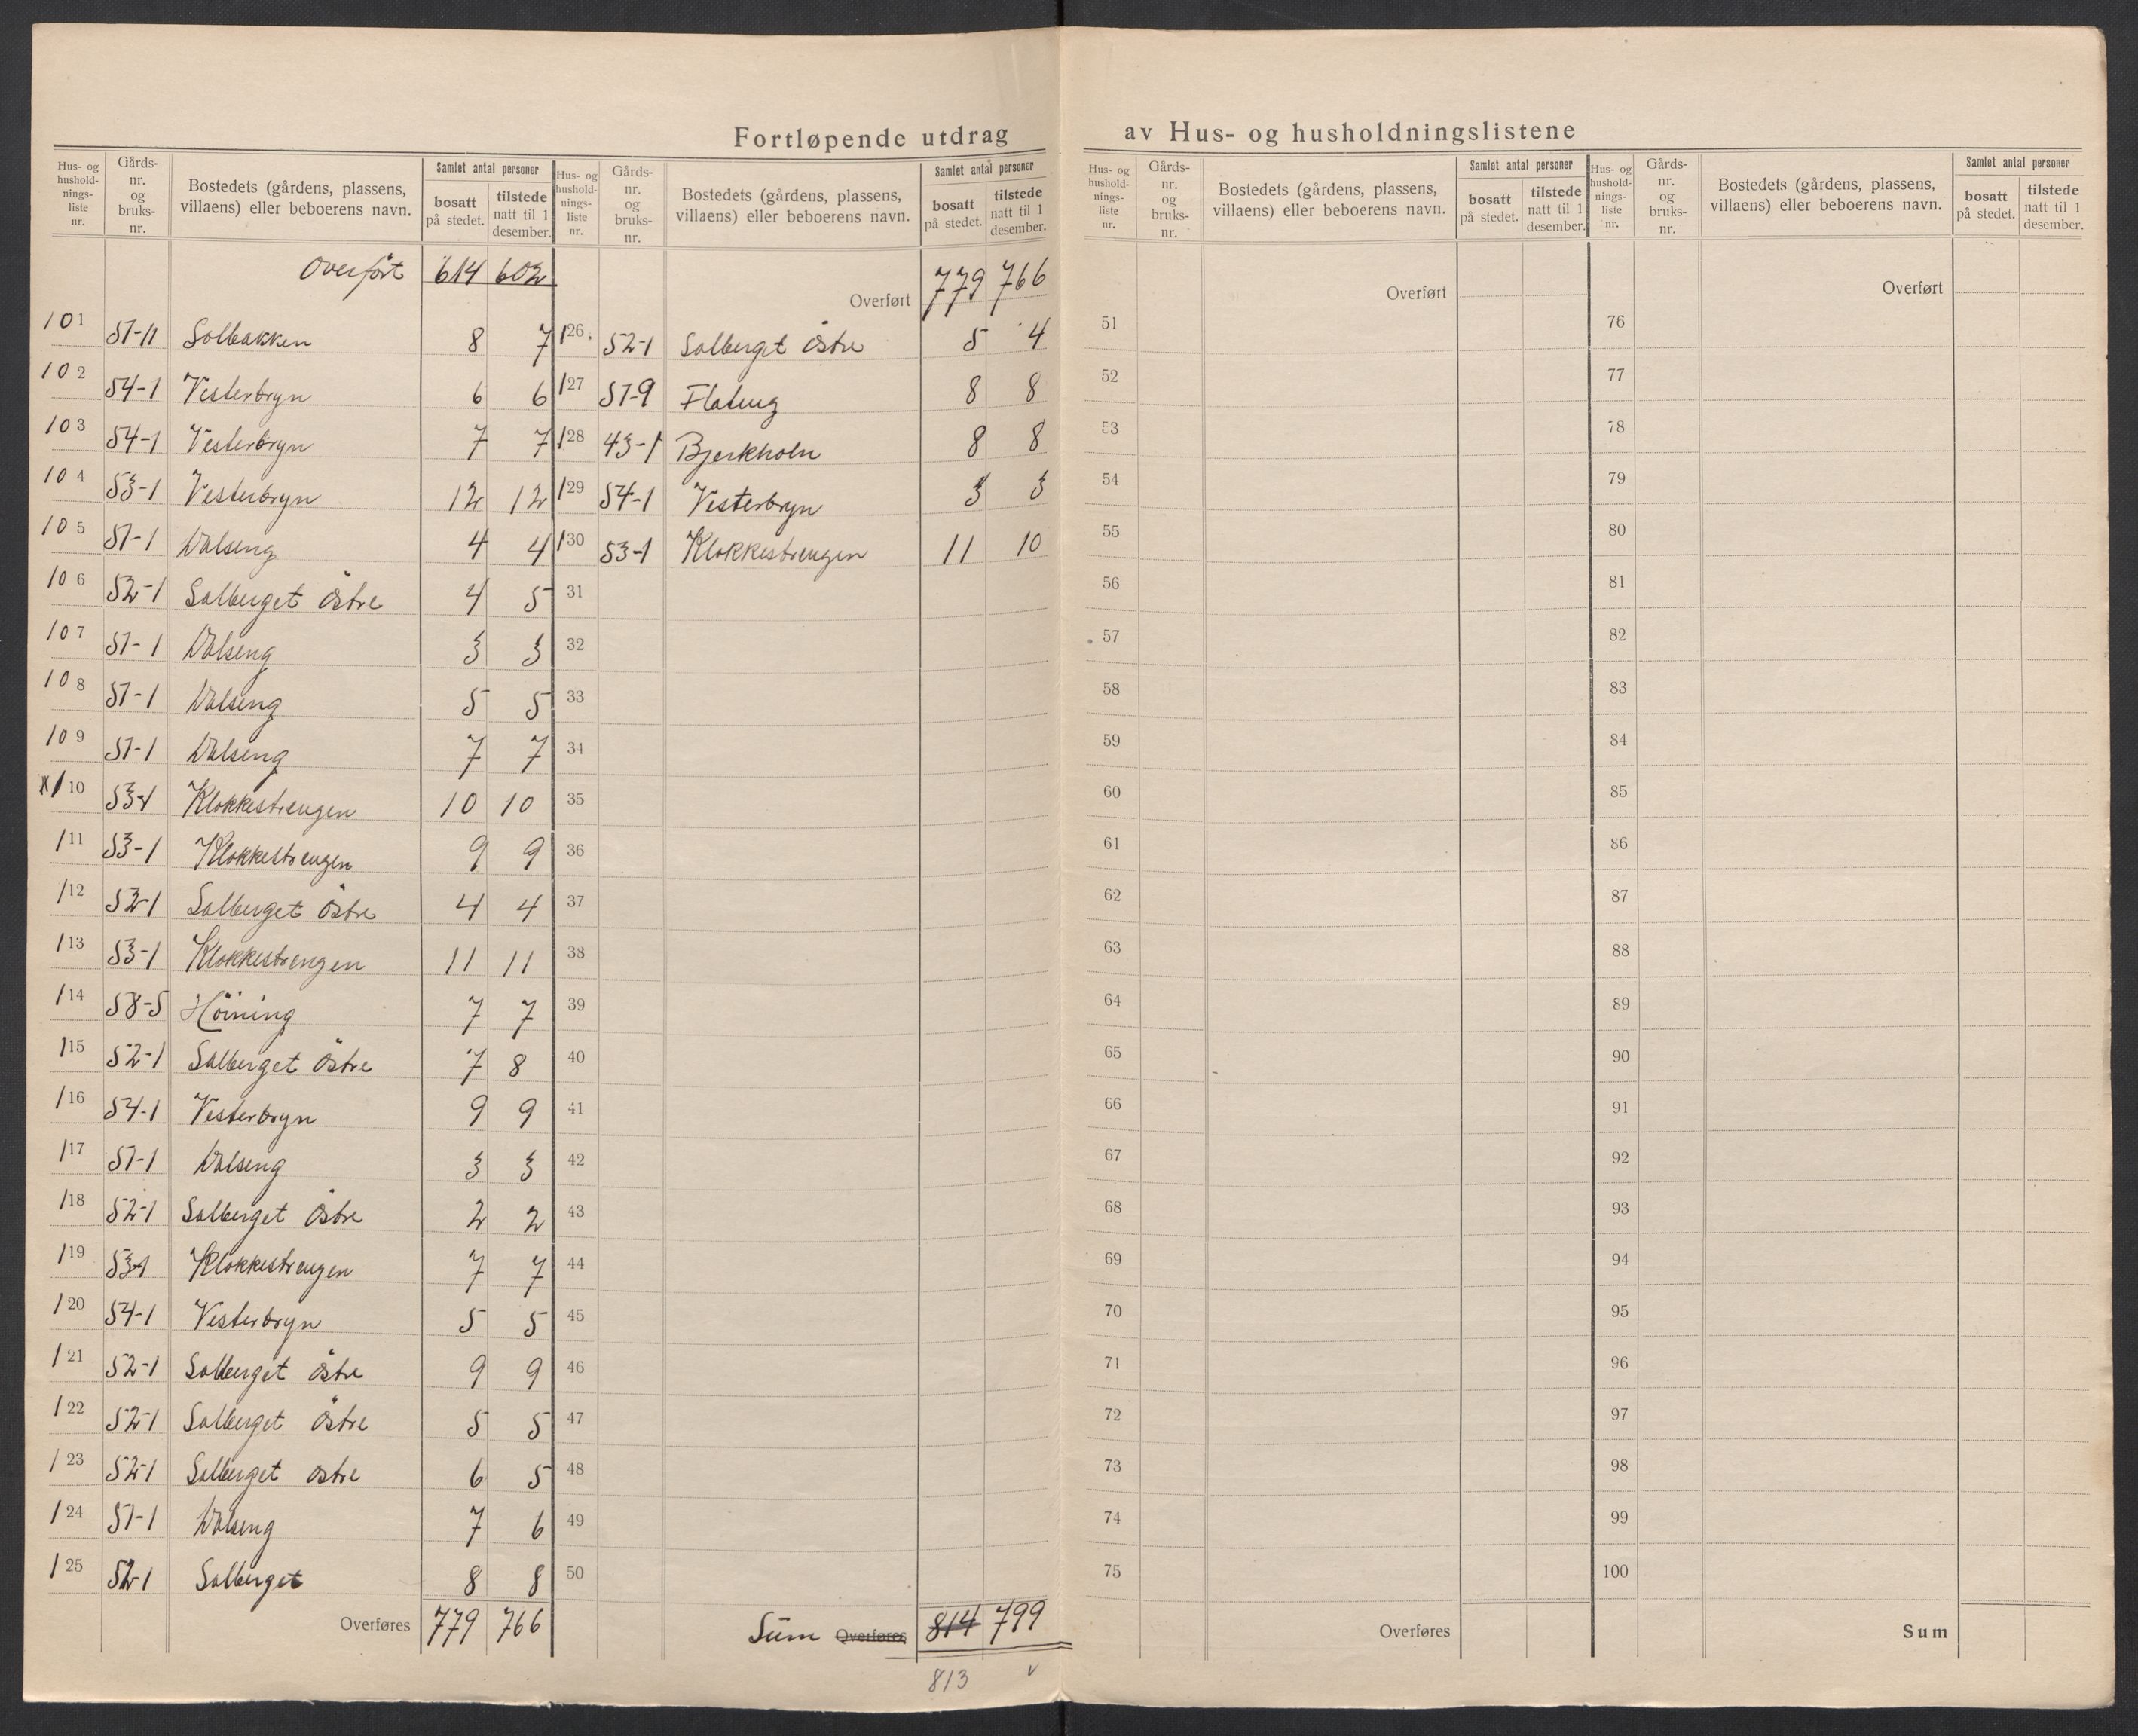 Fortløpende utdrag av Hus- og husholdningslistene
Hus- og hushold- nings- liste nr. | Gårds- nr. og bruks- nr. | Bostedets (gårdens, plassens, villaens) eller beboerens navn. | Samlet antal personer | bosatt på stedet. | tilstede natt til 1 desember.
Overført 614 602
101 51-11 Solbakken 8 7
102 54-1 Vesterbryn 6 6
103 54-1 Vesterbryn 7 7
104 53-1 Vesterbryn 12 12
105 51-1 Dalseng 4 4
106 52-1 Solberget östre 4 5
107 51-1 Dalseng 3 3
108 51-1 Dalseng 5 5
109 51-1 Dalseng 7 7
x110 53-1 Klokkestrengen 10 10
111 53-1 Klokkestrengen 9 9
112 52-1 Solberget östre 4 4
113 53-1 Klokkestrengen 11 11
114 58-5 Höining 7 7
115 52-1 Solberget östre 7 8
116 54-1 Vesterbryn 9 9
117 51-1 Dalseng 3 3
118 52-1 Solberget östre 2 2
119 53-1 Klokkestrengen 7 7
120 54-1 Vesterbryn 5 5
121 52-1 Solberget östre 9 9
122 52-1 Solberget östre 5 5
123 52-1 Solberget ostre 6 5
124 51-1 Dalseng 7 6
125 52-1 Solberget 8 8
Overføres 779 766
Hus- og hushold- nings- liste nr. | Gårds- nr. og bruks- nr. | Bostedets (gårdens, plassens, villaens) eller beboerens navn. | Samlet antal personer | bosatt på stedet. | tilstede natt til 1 desember.
Overført 779 766
126. 52-1 Solberget östre 5 4
127 51-9 Flateng 8 8
128 43-1 Bjerkholm 8 8
129 54-1 Vesterbryn 3 3
130 53-1 Klokkestrengen 11 10
31
32
33
34
35
36
37
38
39
40
41
42
43
44
45
46
47
48
49
50
Sum Overføres 814 799
813 v
Hus- og hushold- nings- liste nr. | Gårds- nr. og bruks- nr. | Bostedets (gårdens, plassens, villaens) eller beboerens navn. | Samlet antal personer | bosatt på stedet. | tilstede natt til 1 desember.
Overført
51
52
53
54
55
56
57
58
59
60
61
62
63
64
65
66
67
68
69
70
71
72
73
74
75
Overføres
Hus- og hushold- nings- liste nr. | Gårds- nr. og bruks- nr. | Bostedets (gårdens, plassens, villaens) eller beboerens navn. | Samlet antal personer | bosatt på stedet. | tilstede natt til 1 desember.
Overført
76
77
78
79
80
81
82
83
84
85
86
87
88
89
90
91
92
93
94
95
96
97
98
99
100
Sum